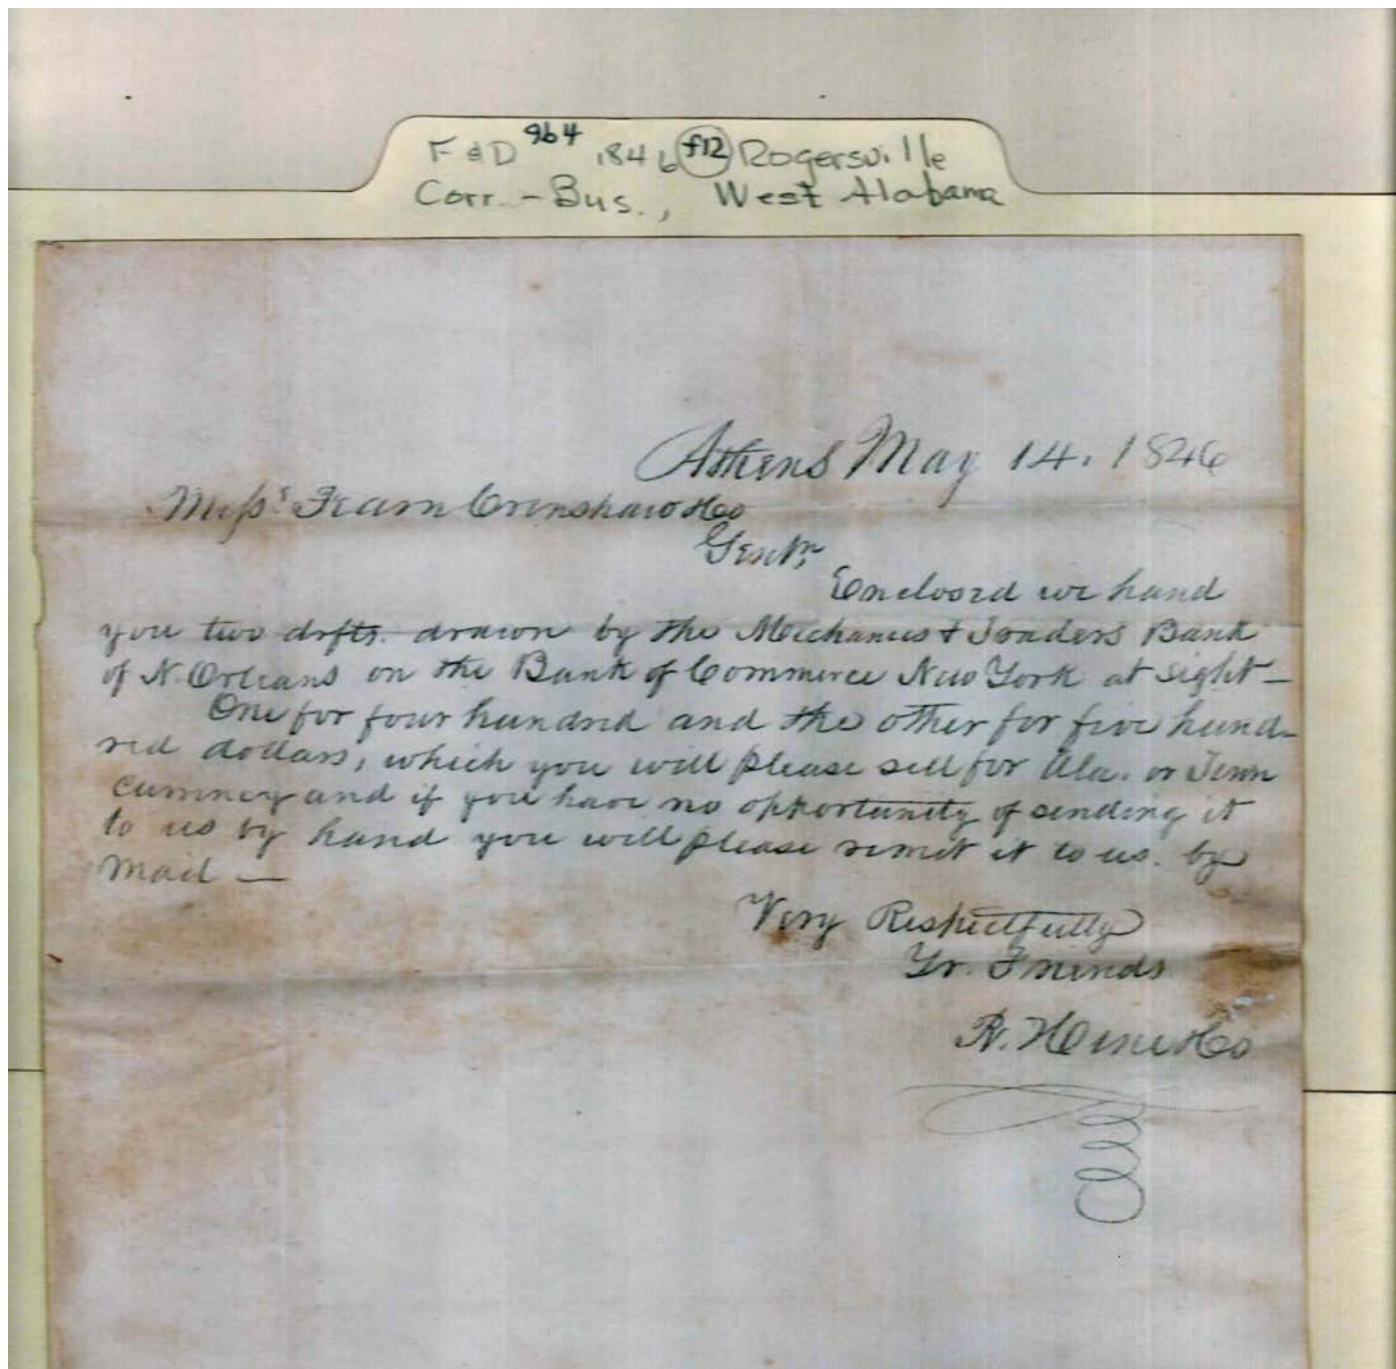 F&D 964 1846 f12 Rogersville
Corr. - Bus., West Alabama
Athens May 14. 1846
Messrs Fearn Crenshaw & Co
Gentn,
Enclosed we hand
you two drfts. drawn by the Mechanics & Traders Bank
of N. Orleans on the Bank of Commerce New York at sight —
One for four hundred and the other for five hund-
red dollars, which you will please sell for Ala. or Tenn
currency and if you have no opportunity of sending it
to us by hand you will please remit it to us. by
Mail —
Very Respectfully
Yr. Friends
R. & Co